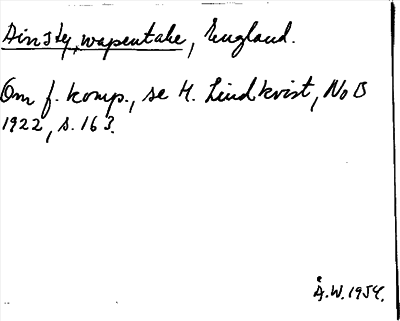 Ainsty, wapentake, England.
Om f. komp., se H. Lindkvist, NoB
1922, s. 163.
Å.W. 1954.